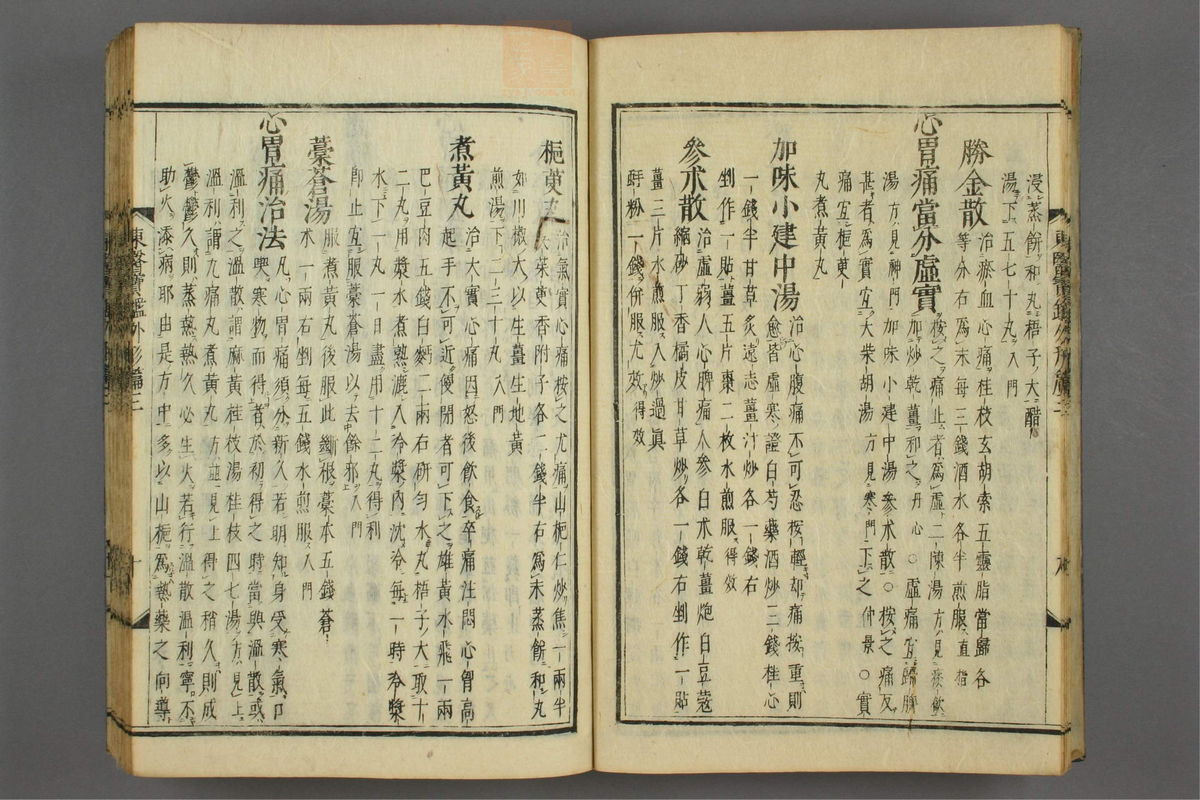 浸蒸餠和丸梧子大醋
湯下五七十丸入門
勝金散治瘀血心痛桂枝玄胡索五靈脂當歸各
等分右爲末每三錢酒水各半煎服直指
心胃痛當分虛實按之痛止者爲虛二陳湯方見痰飮
加炒乾薑和之丹心○虛痛宜歸脾
湯方見神門加味小建中湯參朮散○按之痛反
甚者爲實宜大柴胡湯方見寒門下之仲景○實
痛宜梔萸
丸煮黃丸
加味小建中湯冷心腹痛不可忍按輕却痛按重則
愈皆虛寒證白芍藥酒炒三錢桂心
一錢半甘草炙遠志薑汁炒各一錢右
剉作一貼薑五片棗二枚水煎服得效
參朮散治虛弱人心脾痛人參白朮乾薑炮白豆蔲
縮砂丁香橘皮甘草炒各一錢右剉作一貼
薑三片水煎服入炒過眞
蚌粉一錢併服尤效得效
梔萸丸治氣實心痛按之尤痛山梔仁炒焦一兩半
吳茱萸香附子各二錢半右爲末蒸餠和丸
如川椒大以生薑生地黃
煎湯下二三十丸入門
煮黃丸治大實心痛因怒後飮食卒痛注悶心胷高
起手不可近便閉者可下之雄黃水飛一兩
巴豆肉五錢白麪二兩右硏勻水丸梧子大取十
二丸用漿水煮熟漉入冷漿內沈冷每一時冷漿
水下一丸一日盡用十二丸得利
卽止宜服藁蒼湯以去餘邪入門
藁蒼湯服煮黃丸後服此剗根藁本五錢蒼
朮一兩右剉每五錢水煎服入門
心胃痛治法凡心胃痛須分新久若明知身受寒氣口
喫寒物而得者於初得之時當與溫散或
溫利之溫散謂麻黃桂枝湯桂枝四七湯方見上
溫利謂九痛丸煮黃丸方並見上得之稍久則成
鬱鬱久則蒸熱熱久必生火若行溫散溫利寧不
助火添病耶由是方中多以山梔爲熱藥之向導
東醫寶鑑外形篇三